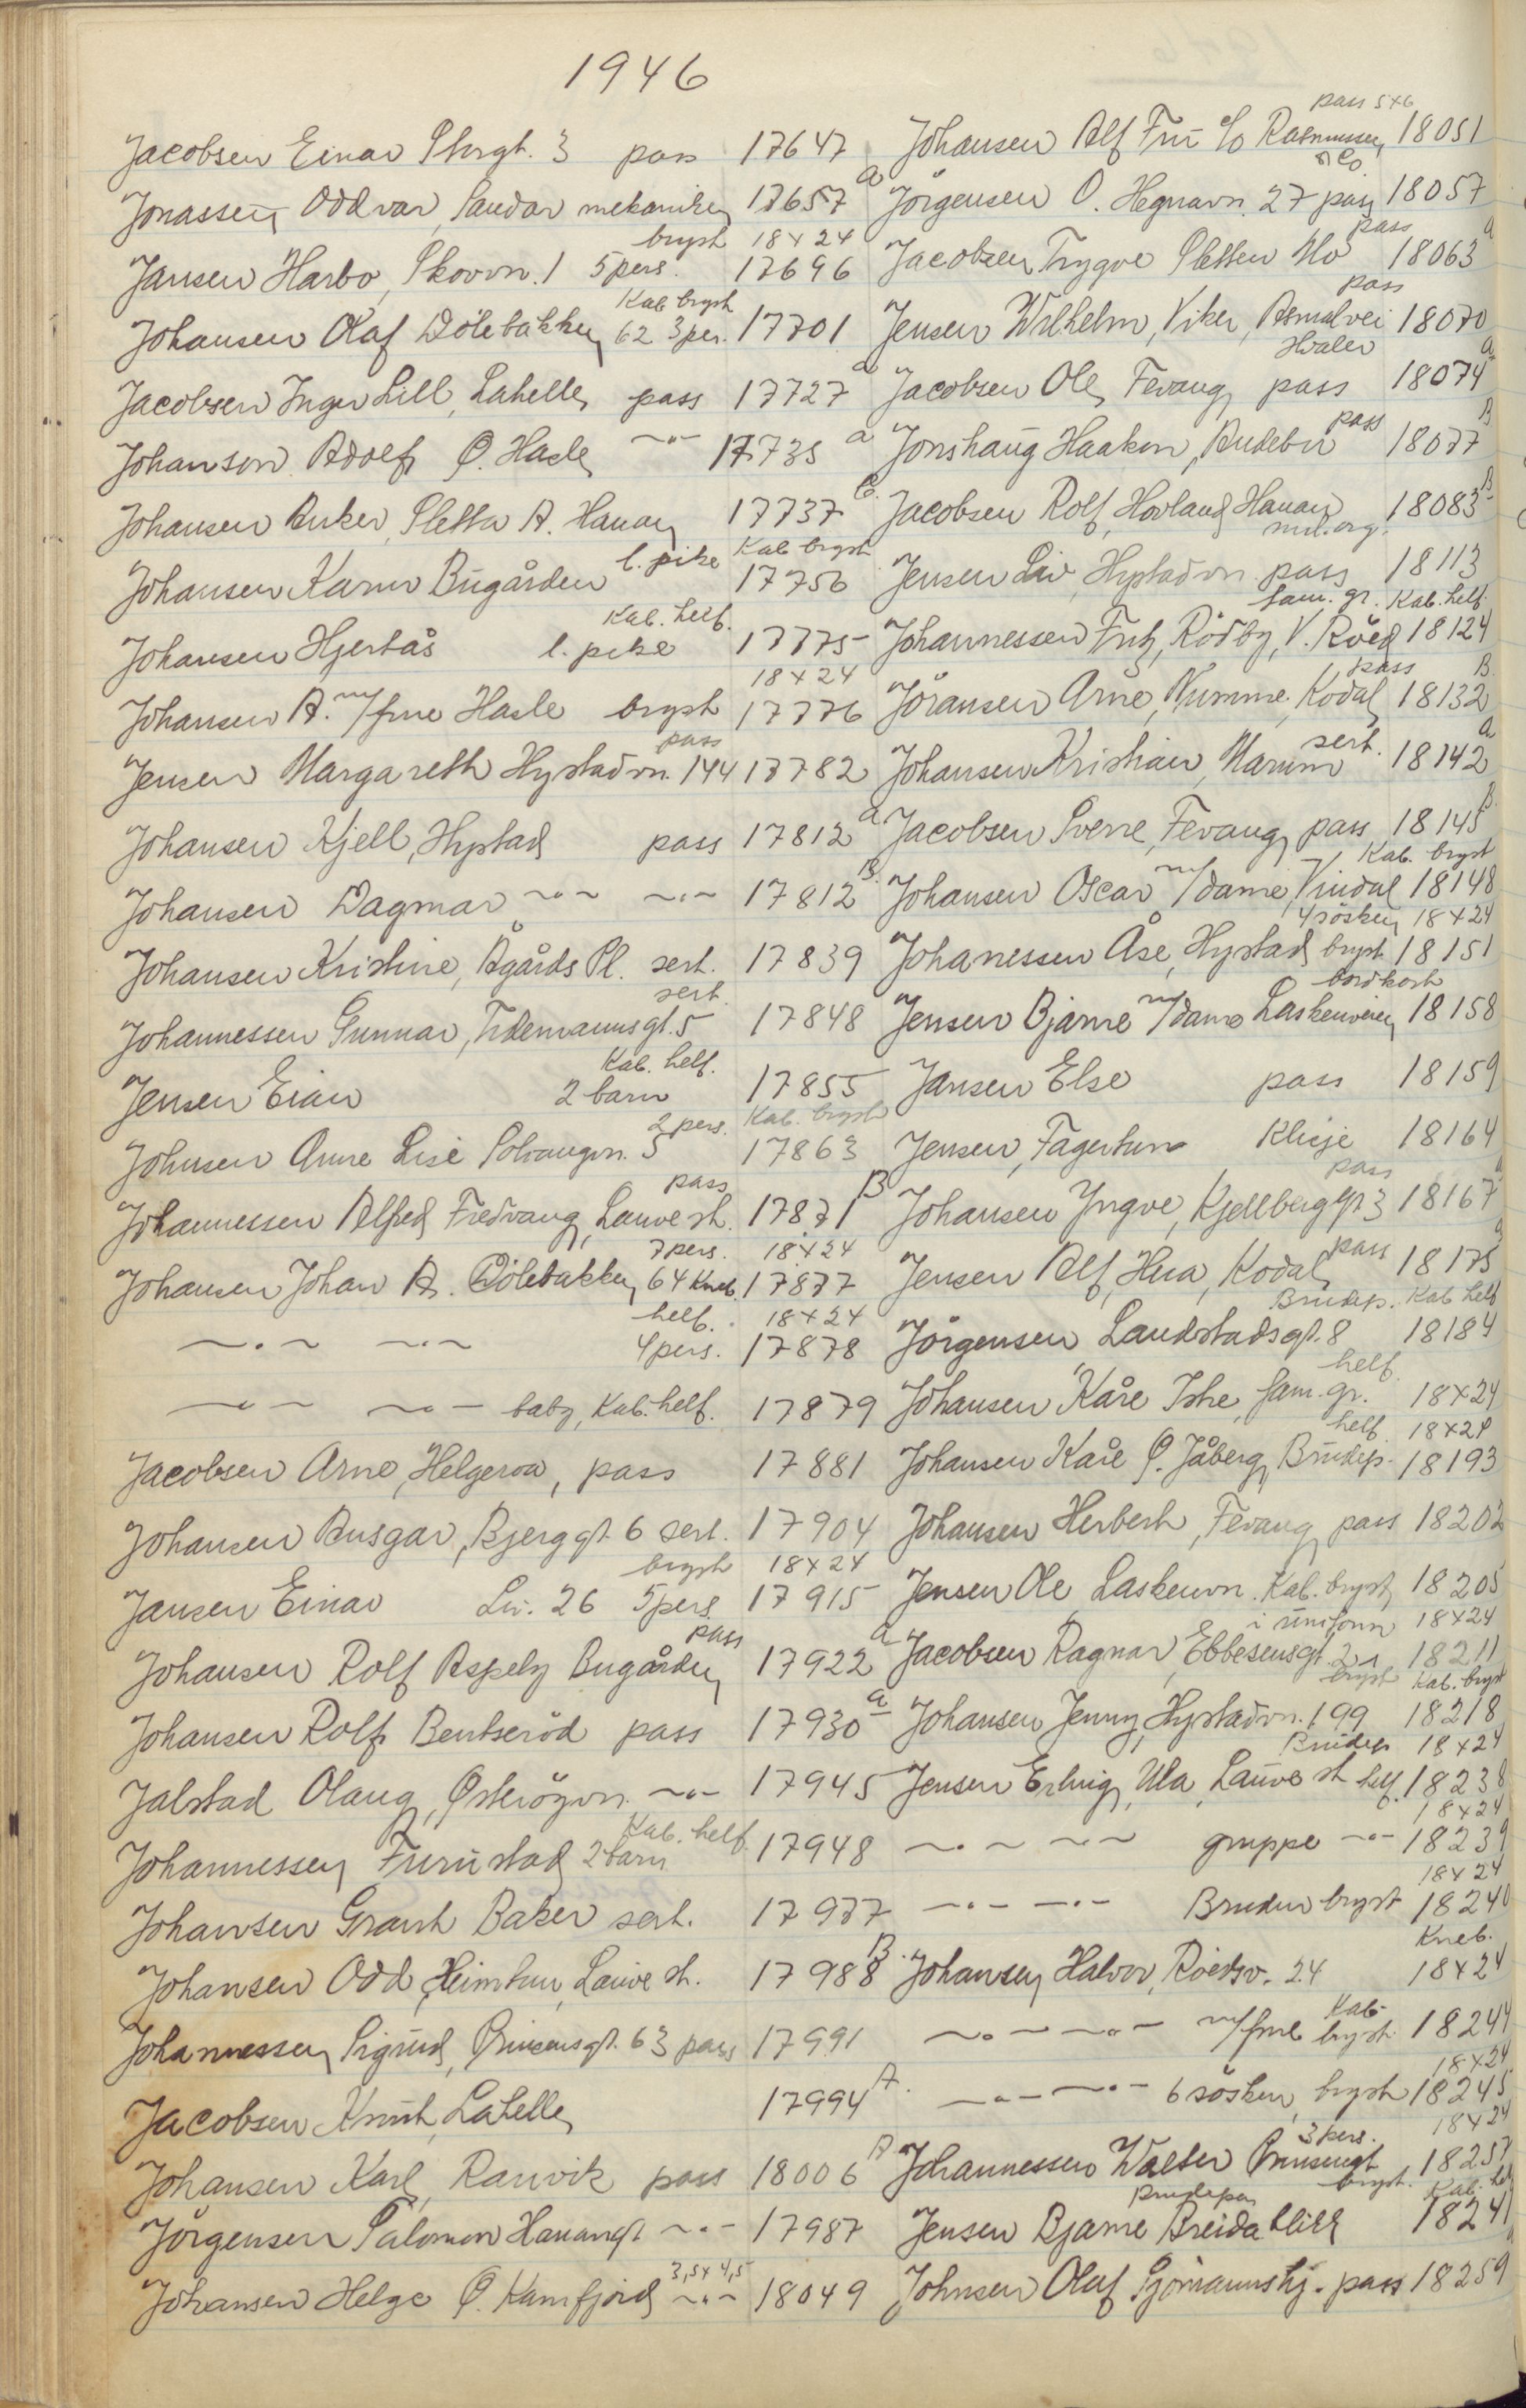 1946
Jacobsen Einar Skrgt. 3 pass 17647
Jonassen Oddvar, Sandar mekaniker 17657 a
bryst 18x24
Jansen Harbo, Skovvn. 1 5 pers. 17696
Kab bryst
Johansen Olaf Dölebakken 62 3 per. 17701
Jacobsen Inger Lill, Lahelle pass 17727 a
Johanson Adolf Ø. Hasle -"- 17735 a
Johansen Anker, Sletta A. Hauan 17737 C.
l. pike Kab bryst
Johansen Karin Bugården 17756
Kab. helf.
Johansen Hjertås l. pike 17775
18x24
Johansen A. m/frue Hasle bryst 17776
pass
Jensen Margareth Hystadvn. 144 17782
Johansen Kjell, Hystad pass 17812 a
Johansen Dagmar -"- -"- 17812 B.
Johansen Kristine, Ågårds Pl. sert. 17839
sert.
Johannessen Gunnar, Tidemannsgt. 5 17848
Kab. helf.
Jensen Eian 2 barn 17855
2 pers. Kab. bryst
Johnsen Anne Lise Solvangvn. 5 17863
pass
Johannessen Alfred Fredvang, Lauve st. 17871 B
7 pers. 18x24
Johansen Johan A. Dölebakken 64 Kneb. 17877
helf. 18x24
-"- -"- 4 pers. 17878
-"- -"- baby, Kab. helf. 17879
Jacobsen Arne, Helgeroa, pass 17881
Johansen Ansgar, Bjerggt. 6 sert. 17904
bryst 18x24
Jansen Einar Lu. 26 5 pers. 17915
pass
Johansen Rolf Aspely Bugården 17922 a
Johansen Rolf Bentseröd pass 17930 a
Jalstad Olaug, Østerøyvn. -"- 17945
Kab. helf.
Johannessen Furustad 2 barn 17948
Johansen Grant Baker sert. 17977
Johansen Odd, Heimtun, Lauve st. 17988 B.
Johannessen Sigrud, Prinsensgt. 63 pass 17991
Jacobsen Knut, Lahelle 17994 A.
Johansen Karl, Ranvik pass 18006 A
Jörgensen Salomon Hauangt -"- 17987
3,5x4,5
Johansen Helge Ø. Kamfjord -"- 18049
pass 5x6
Johansen Alf Fru c/o Rasmussen 18051
& Co
Jörgensen O. Hegnavn. 27 pass 18057
pass
Jacobsen Trygve Sletten Mo 18063 a
pass
Jensen Wilhelm, Viker, Asmalvei 18070
Hvaler
Jacobsen Ole, Fevang pass 18074 a
pass
Jonshaug Haakon, Andebu 18077 B
Jacobsen Rolf, Hovland Hauan 18083 B
mil. org.
Jensen Liv, Hystadvn. pass 18113
fam. gr. Kab. helf.
Johannessen Fritz, Rödby, V. Röed 18124
pass
Jöransen Arne, Numme, Kodal 18132 B
sert.
Johansen Kristian, Marum 18142 a
Jacobsen Sverre, Fevang pass 18145 B
Kab. bryst
Johansen Oscar m/dame, Vindal 18148
4 sösken 18x24
Johanessen Åse, Hystad, bryst 18151
bordkort
Jensen Bjarne m/dame Laskenveien 18158
Jansen Else pass 18159
Jensen, Fagertun Klisje 18164
pass
Johansen Yngve, Kjellberggt. 3 18167 a
pass
Jensen Alf, Hua, Kodal 18175 a
Brudep. Kab helf
Jörgensen Landstadsgt. 8 18184
helf.
Johansen Kåre Istre, fam. gr. 18x24
helf. 18x24
Johansen Kåre Ø. Jåberg, Brudep. 18193
Johansen Herbert, Fevang pass 18202
Jensen Ole Laskenvn. Kab. bryst 18205
i uniform 18x24
Jacobsen Ragnar, Ebbesensgt. 21 18211
bryst Kab. bryst
Johansen Jenny, Hystadvn. 199 18218
Brudep 18x24
Jensen Erling, Ula, Lauve st helf. 18238
18x24
-"- -"- gruppe -"- 18239
18x24
-"- -"- Bruden bryst 18240
Kneb.
Johansen Halvor, Röedsv. 24 18x24
Kab.
-"- -"- m/frue bryst 18244
18x24
-"- -"- 6 sösken, bryst 18245
3 pers. 18x24
Johannessen Walter Prinsensgt 18257
bryst. Kab. hel
Brudepar
Jensen Bjarne Breidablikk 18241
Johnsen Olaf Sjömannshj. pass 18259